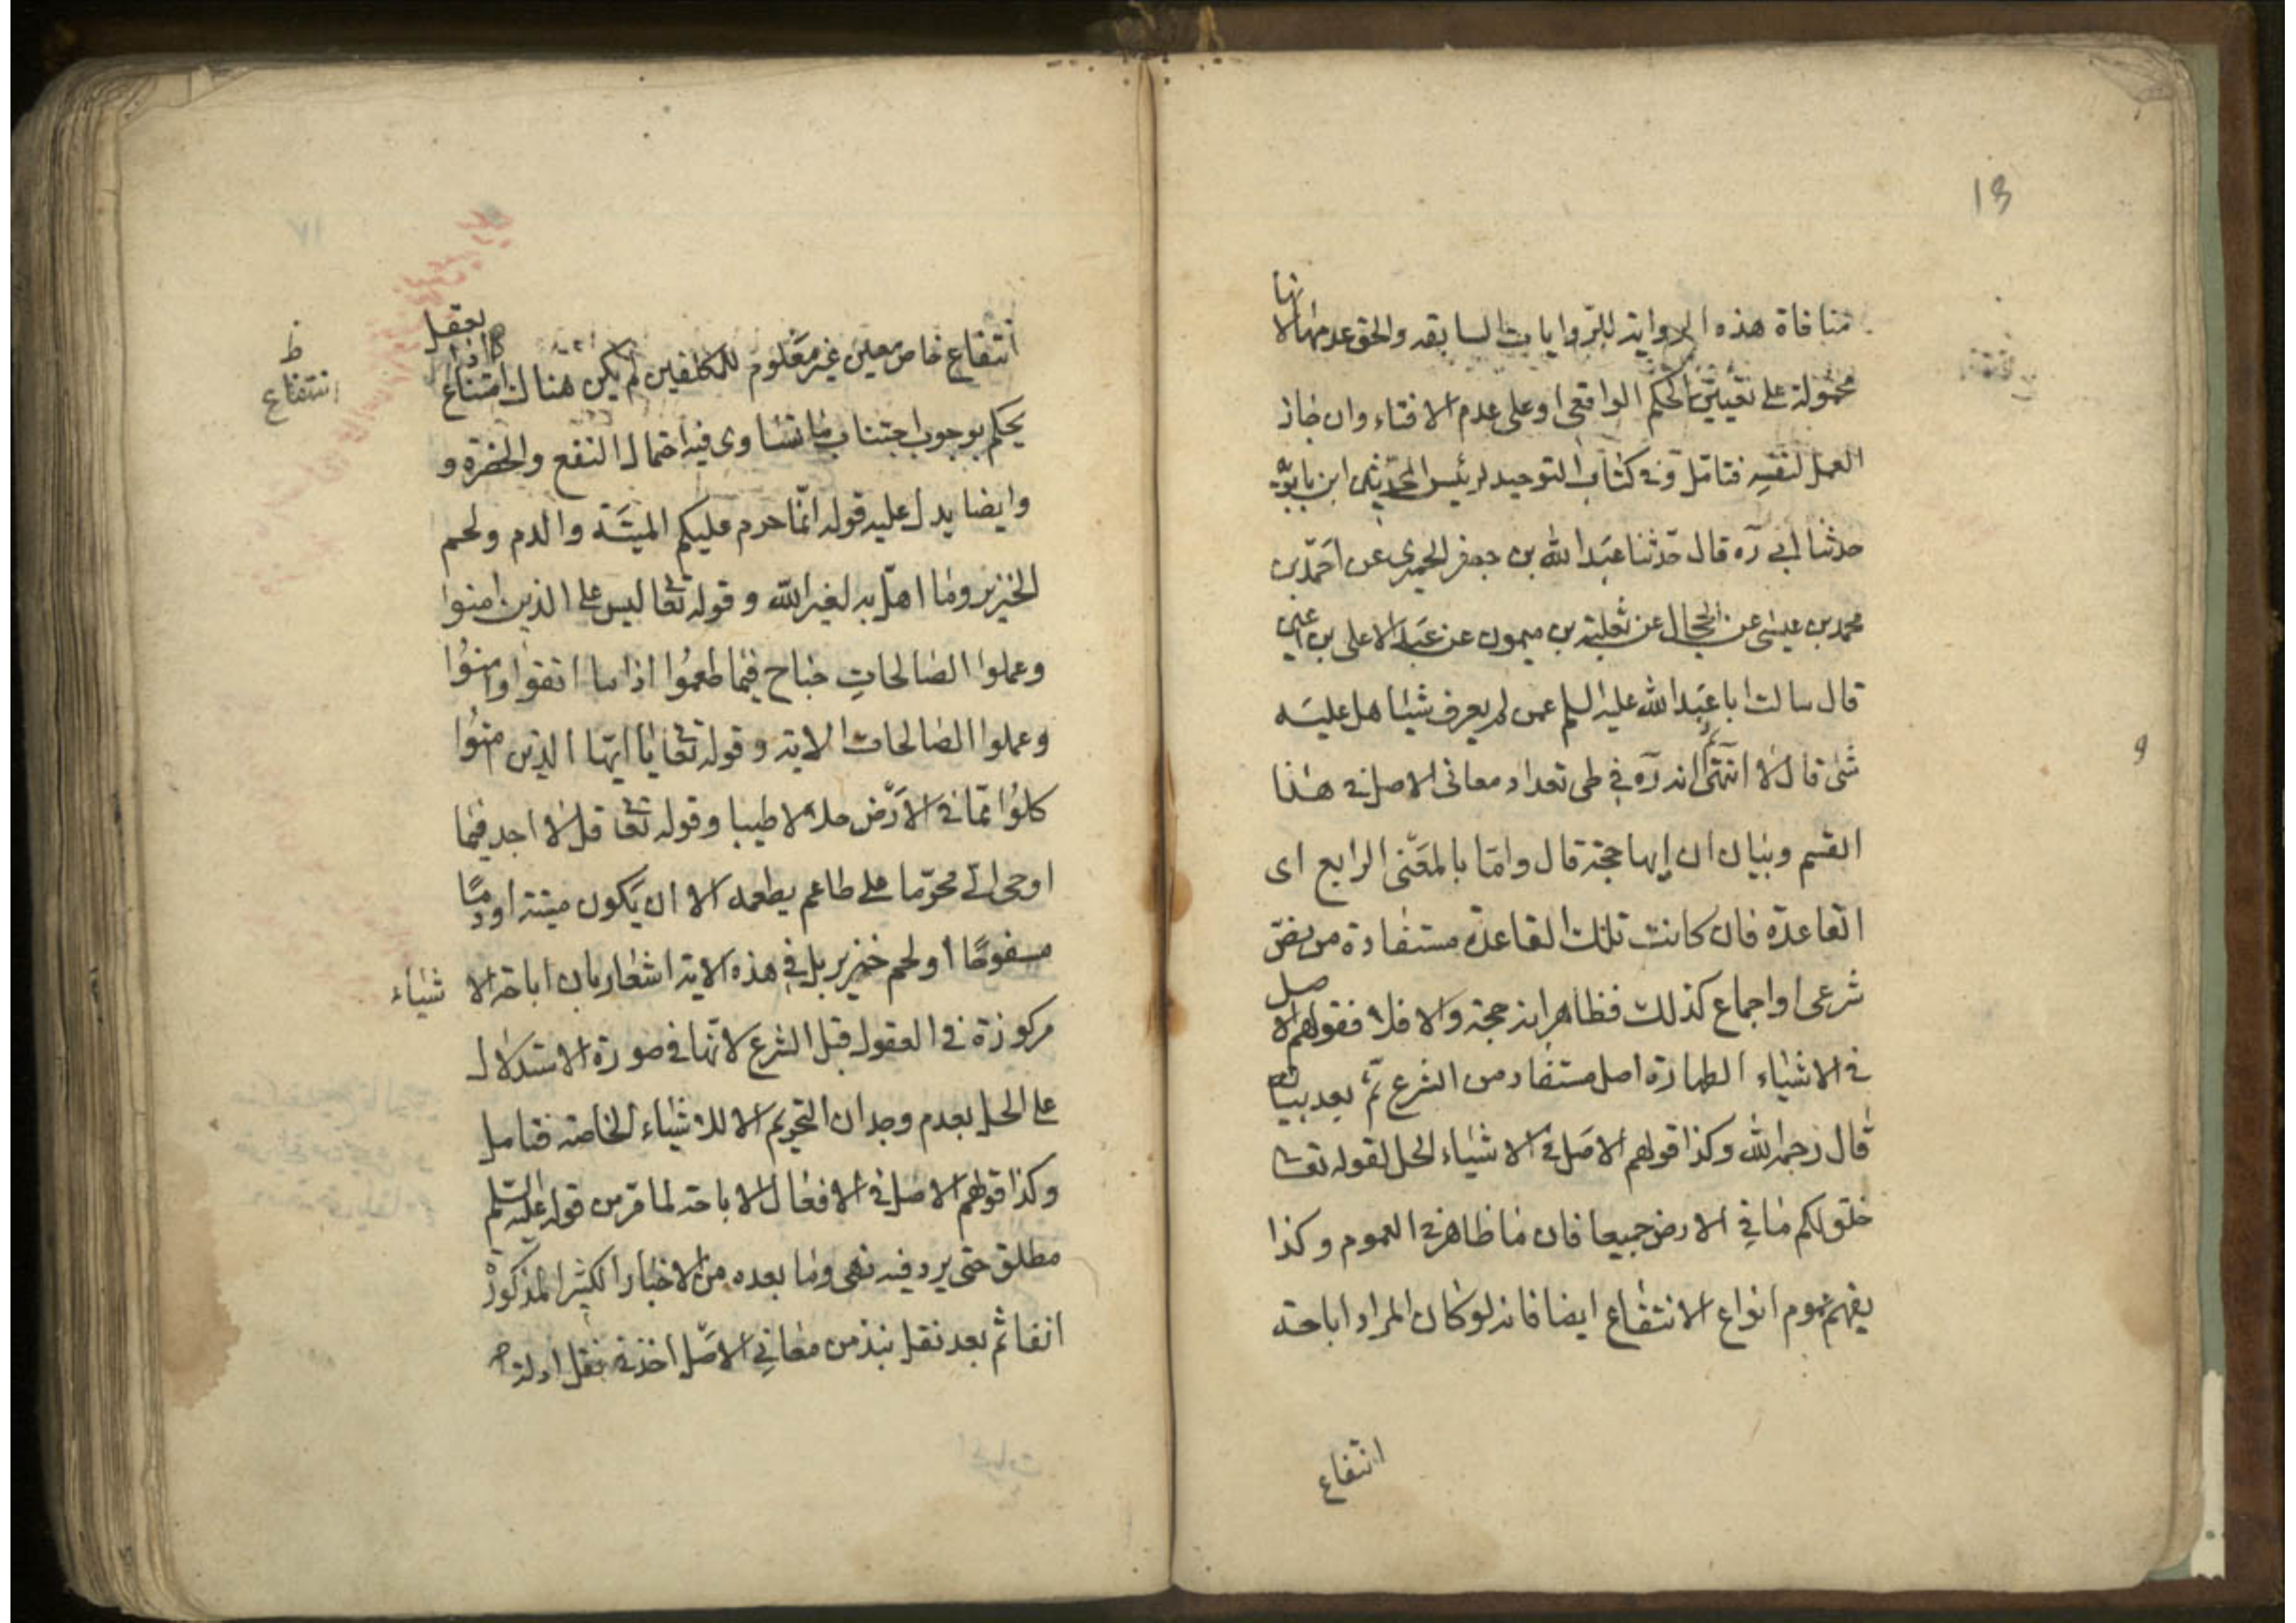 13
منافاة هذه الرواية للروايات السابقه والحق عدمها لانها
محمولة على تعيين الحكم الواقعى او على عدم الافتاء وان جاز
العمل لنفسه فتامل وفى كتاب التوحيد لرئيس المحدثين ابن بابويه
حدثنا ابى ره قال حدثنا عبد الله بن جعفر الحميرى عن احمد بن
محمد بن عيسى عن الحجال عن ثعلبة بن ميمون عن عبد الاعلى بن اعين
قال سالت ابا عبد الله عليه السلم عمن لم يعرف شيئا هل عليه
شئ قال لا انتهى ثم انه ره فى طى تعداد معانى الاصل فى هذا
القسم وبيان ان ايها حجة قال واما بالمعنى الرابع اى
القاعدة فان كانت تلك القاعدة مستفادة من نص
شرعى او اجماع كذلك فظاهر انه حجة والا فلا فقولهم الاصل
فى الاشياء الطهارة اصل مستفاد من الشرع ثم بعد بيانه
قال رحمه الله وكذا قولهم الاصل فى الاشياء الحل لقوله تعا
خلق لكم ما فى الارض جميعا فان ما ظاهر فى العموم وكذا
يفهم عموم انواع الانتفاع ايضا فانه لو كان المراد اباحة
انتفاع
انتفاع خاص معين غير معلوم للمكلفين لم يكن هناك امتناع اذ العقل
يحكم بوجوب اجتناب ما تساوى فيه احتمال النفع والمضرة و
وايضا يدل عليه قوله انما حرم عليكم الميتة والدم ولحم
الخنزير وما اهل به لغير الله وقوله تعا ليس على الذين امنوا
وعملوا الصالحات جناح فيما طعموا اذا ما اتقوا وامنوا
وعملوا الصالحات الاية وقوله تعا يا ايها الذين امنوا
كلوا مما فى الارض حلالا طيبا وقوله تعا قل لا اجد فيما
اوحى الى محرما على طاعم يطعمه الا ان يكون ميتة او دما
مسفوحا او لحم خنزير بل فى هذه الاية اشعار بان اباحة الاشياء
مركوزة فى العقول قبل الشرع لانها فى صورة الاستدلال
على الحل بعدم وجدان التحريم الا للاشياء الخاصة فتامل
وكذا قولهم الاصل فى الافعال الاباحة لما مر من قوله عليه السلم
مطلق حتى يرد فيه نهى وما بعده من الاخبار الكثيرة المذكورة
انفا ثم بعد نقل نبذ من معانى الاصل اخذ فى نقل ادلة
ظ
انتفاع